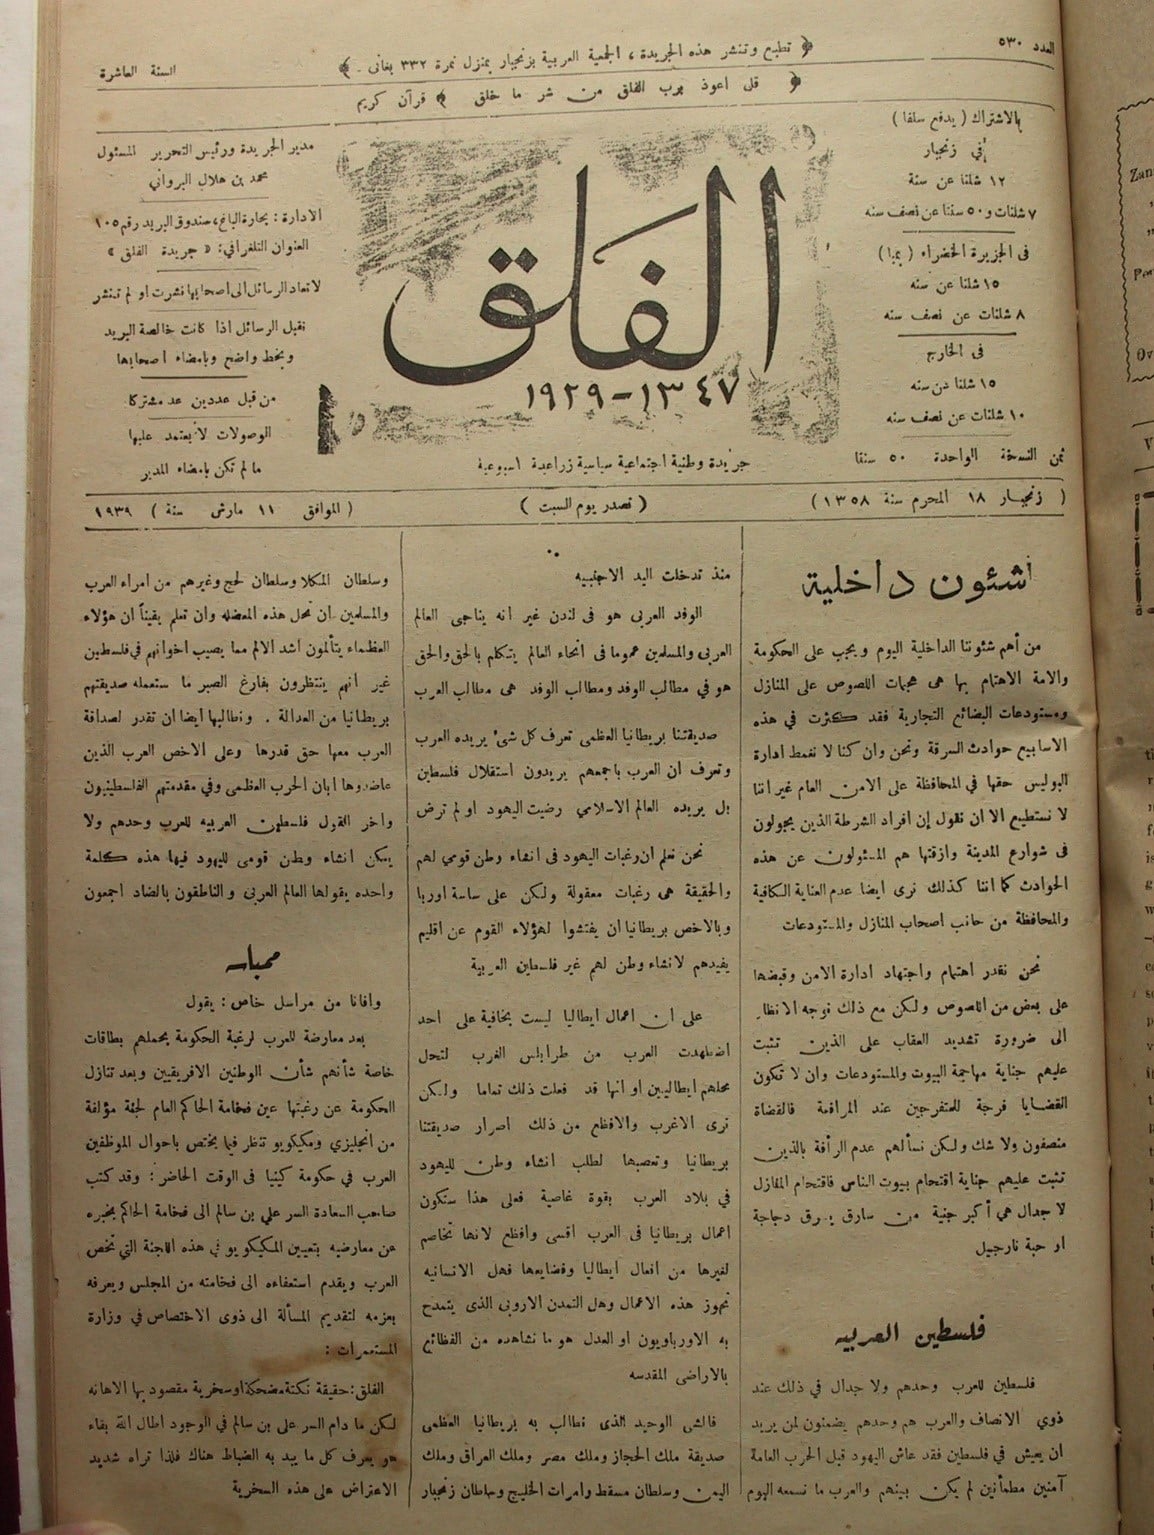 العدد ٥٣٠
﴿ تطبع وتنشر هذه الجريدة ، الجمعية العربية بزنجبار بمنزل نمرة ٣٣٢ بغانى . ﴾
السنة العاشرة
﴿ قل اعوذ برب الفلق من شر ما خلق ﴾ قرآن كريم
الاشتراك ( يدفع سلفا )
في زنجبار
١٢ شلنا عن سنة
٧ شلنات و ٥٠ سنتا عن نصف سنه
فى الجزيرة الخضراء ( بمبا )
١٥ شلنا عن سنه
٨ شلنات عن نصف سنه
فى الخارج
١٥ شلنا عن سنه
١٠ شلنات عن نصف سنه
ثمن النسخة الواحدة ٥٠ سنتا
الفلق
١٣٤٧ – ١٩٢٩
جريدة وطنية اجتماعية سياسية زراعية اسبوعية
مدير الجريدة ورئيس التحرير المسئول
محمد بن هلال البرواني
الادارة : بحارة الباغ ، صندوق البريد رقم ١٠٥
العنوان التلغرافي : « جريدة الفلق »
لا تعاد الرسائل الى اصحابها نشرت او لم تنشر
تقبل الرسائل اذا كانت خالصة البريد
وبخط واضح وبامضاء اصحابها
من قبل عددين عد مشتركا
الوصولات لا يعتمد عليها
ما لم تكن بامضاء المدير
( زنجبار ١٨ المحرم سنة ١٣٥٨ )
( تصدر يوم السبت )
( الموافق ١١ مارش سنة ) ١٩٣٩
شئون داخلية
من أهم شئوننا الداخلية اليوم ويجب على الحكومة
والامة الاهتمام بها هى هجمات اللصوص على المنازل
ومستودعات البضائع التجارية فقد كثرت في هذه
الاسابيع حوادث السرقة ونحن وان كنا لا نغمط ادارة
البوليس حقها في المحافظة على الامن العام غير اننا
لا نستطيع الا ان نقول إن افراد الشرطة الذين يجولون
فى شوارع المدينة وازقتها هم المسئولون عن هذه
الحوادث كما اننا كذلك نرى ايضا عدم العناية الكافية
والمحافظة من جانب اصحاب المنازل والمستودعات
نحن نقدر اهتمام واجتهاد ادارة الامن وقبضها
على بعض من اللصوص ولكن مع ذلك نوجه الانظار
الى ضرورة تشديد العقاب على الذين تثبت
عليهم جناية مهاجمة البيوت والمستودعات وان لا تكون
القضايا فرجة للمتفرجين عند المرافعة فالقضاة
منصفون ولا شك ولكن نسألهم عدم الرأفة بالذين
تثبت عليهم جناية اقتحام بيوت الناس فاقتحام المنازل
لا جدال هي أكبر جنية من سارق يسرق دجاجة
او حبة نارجيل
فلسطين العربيه
فلسطين للعرب وحدهم ولا جدال في ذلك عند
ذوي الانصاف والعرب هم وحدهم يضمنون لمن يريد
ان يعيش في فلسطين فقد عاش اليهود قبل الحرب العامة
آمنين مطمأنين لم يكن بينهم والعرب ما نسمعه اليوم
منذ تدخلت اليد الاجنبيه
الوفد العربى هو فى لندن غير انه يناجى العالم
العربى والمسلمين عموما فى أنحاء العالم يتكلم بالحق والحق
هو في مطالب الوفد ومطالب الوفد هى مطالب العرب
صديقتنا بريطانيا العظمى تعرف كل شئ يريده العرب
وتعرف ان العرب باجمعهم يريدون استقلال فلسطين
بل يريده العالم الاسلامي رضيت اليهود او لم ترض
نحن نعلم ان رغبات اليهود فى انشاء وطن قومي لهم
والحقيقة هى رغبات معقولة ولكن على ساسة اوربا
وبالاخص بريطانيا ان يفتشوا لهؤلاء القوم عن اقليم
يفيدهم لانشاء وطن لهم غير فلسطين العربية
على ان اعمال ايطاليا ليست بخافية على احد
اضطهدت العرب من طرابلس الغرب لتحل
محلهم ايطاليين او انها قد فعلت ذلك تماما ولكن
نرى الاغرب والافظع من ذلك اصرار صديقتنا
بريطانيا وتعصبها لطلب انشاء وطن لليهود
في بلاد العرب بقوة غاصبة فعلى هذا ستكون
اعمال بريطانيا فى العرب اقسى وافظع لانها تخاصم
لغيرها من افعال ايطاليا وفضايعها فهل الانسانيه
تجوز هذه الاعمال وهل التمدن الاروبى الذى يتمدح
به الاورباويون او العدل هو ما نشاهده من الفظائع
بالاراضى المقدسه
فالشى الوحيد الذى نطالب به بريطانيا العظمى
صديقة ملك الحجاز وملك مصر وملك العراق وملك
اليمن وسلطان مسقط وامرات الخليج وسلطان زنجبار
وسلطان المكلا وسلطان لحج وغيرهم من امراء العرب
والمسلمين ان تحل هذه المعضله وان تعلم يقيناً ان هؤلاء
العظماء يتألمون اشد الالم مما يصيب اخوانهم في فلسطين
غير انهم ينتظرون بفارغ الصبر ما ستعمله صديقتهم
بريطانيا من العدالة . ونطالبها ايضا ان تقدر لصداقة
العرب معها حق قدرها وعلى الاخص العرب الذين
عاضدوها ابان الحرب العظمى وفي مقدمتهم الفلسطينيون
واخر القول فلسطين العربيه للعرب وحدهم ولا
يمكن انشاء وطن قومى لليهود فيها هذه كلمة
واحده يقولها العالم العربى والناطقون بالضاد اجمعون
ممباسه
وافانا من مراسل خاص : يقول
بعد معارضة للعرب لرغبة الحكومة بحملهم بطاقات
خاصة شأنهم شأن الوطنين الافريقيين وبعد تنازل
الحكومة عن رغبتها عين فخامة الحاكم العام لجنة مؤلفة
من انجليزي ومكيكويو تنظر فيما يختص باحوال الموظفين
العرب في حكومة كينيا فى الوقت الحاضر : وقد كتب
صاحب السعادة السر علي بن سالم الى فخامة الحاكم يخبره
عن معارضيه بتعيين المكيكويو في هذه اللجنة التي تخص
العرب ويقدم استعفاءه الى فخامته من المجلس ويعرفه
بعزمه لتقديم المسألة الى ذوى الاختصاص في وزارة
المستعمرات :
الفلق : حقيقة نكتة مضحكة او سخرية مقصود بها الاهانه
لكن ما دام السر على بن سالم في الوجود اطال الله بقاء
هو يعرف كل ما يبد به الضباط هناك فلذا تراه شديد
الاعتراض على هذه السخرية